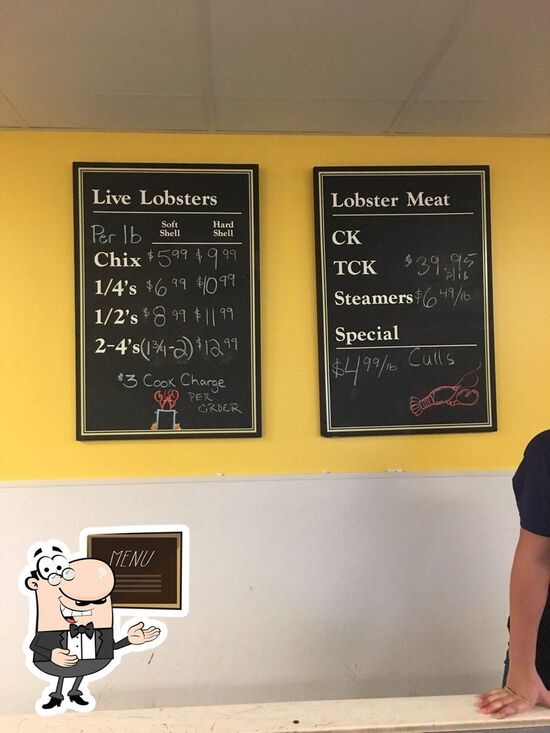 Live Lobsters
Per lb Soft Shell Hard Shell
Chix $5 99 $9 99
1/4's $6 99 $10 99
1/2's $8 99 $11 99
2-4's (1 3/4-2) $12 99
$3 Cook Charge
PER
ORDER
Lobster Meat
CK
TCK $39.95
Steamers $6 49/lb
Special
$4 99/lb Culls
MENU